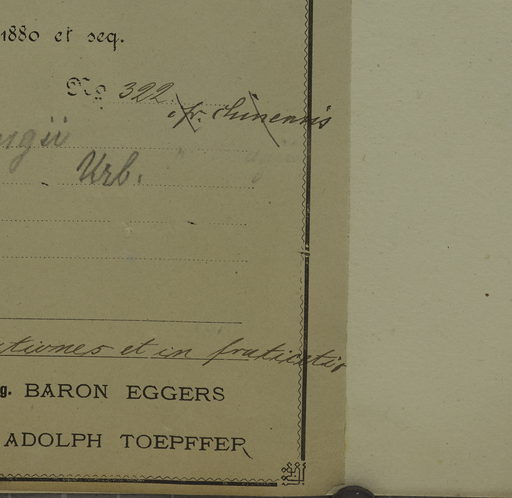 1880 et seq.
No 322
pr. chinensis
ngii
Urb.
ationes et in fruticetis
g. BARON EGGERS
ADOLPH TOEPFFER